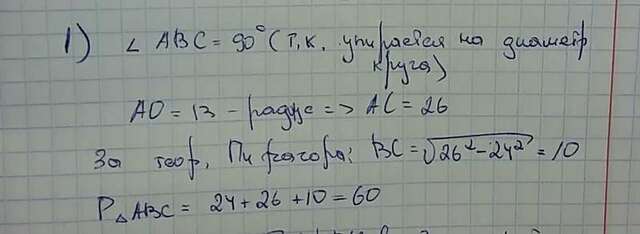 1) ∠ ABC = 90° (т.к. упирается на диаметр
круга)
AO = 13 - радиус => AC = 26
За теор. Пифагора: BC = √26² - 24² = 10
P△ABC = 24 + 26 + 10 = 60